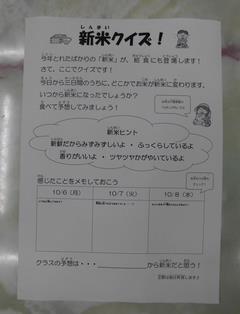 しんまい
新米クイズ！
今年とれたばかりの「新米」が、給食にも登場します！
さて、ここでクイズです！
今日から三日間のうちに、どこかでお米が新米に変わります。
いつから新米になったでしょうか？
食べて予想してみましょう！
新米ヒント
新鮮だからみずみずしいよ・ふっくらしているよ
香りがいいよ・ツヤツヤかがやいているよ
感じたことをメモしておこう
10/6（月）
10/7（火）
10/8（水）
クラスの予想は・・・から新米だと思う！